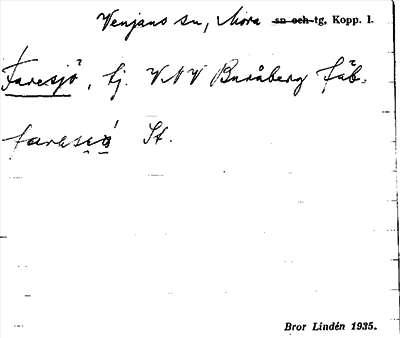 Venjans sn, Mora sn och tg, Kopp. l.
Faresjö, tj. VNV Buråberg fäb.
faresjö́ St.
Bror Lindén 1935.